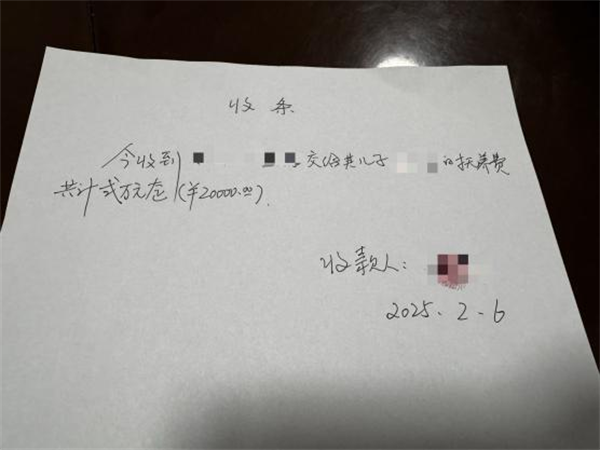 收条
今收到 交给其儿子 的抚养费
共计贰万元整(￥20000.00).
收款人:
2025.2.6